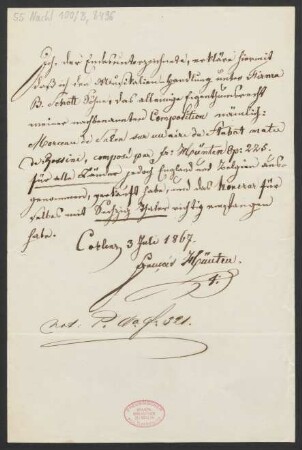 55 Nachl 100/B,
Ich, der Endesunterzeichnete, erkläre hiermit
daß ich der Musikalien Handlung unter Firma
B. Schott Söhne, das alleinige Eigenthumsrecht
meiner nachbenannten Composition nämlich:
Morceau de Salon sur un air de Stabat mater
de Rossini, composé par Fr: Hünten Op: 225.
für alle Länder jedoch England und Belgien aus-
genommen, verkauft habe, und das Honorar für
selbes mit Thaler richtig empfangen
habe.
Coblenz 3 1867.
François Hünten.
321.